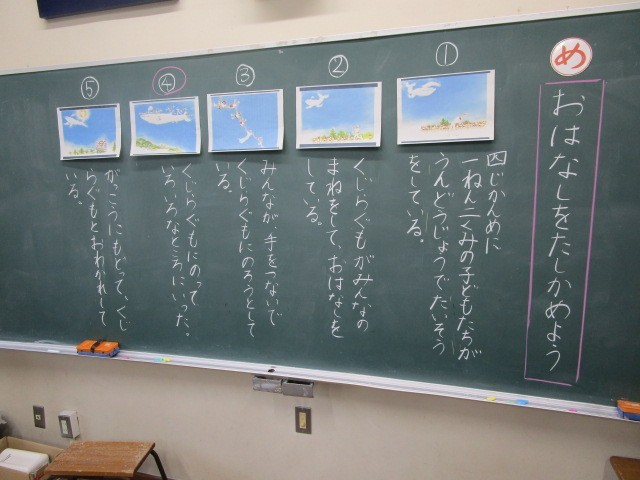 め
おはなしをたしかめよう
①
四じかんめに
一ねん二くみの子どもたちが
うんどうじょうでたいそう
をしている。
②
くじらぐもがみんなの
まねをして、おはなしを
している。
③
みんなが、手をつないで
くじらぐもにのろうとして
いる。
④
くじらぐもにのって
いろいろなところにいった。
⑤
がっこうにもどって、くじ
らぐもとおわかれして
いる。